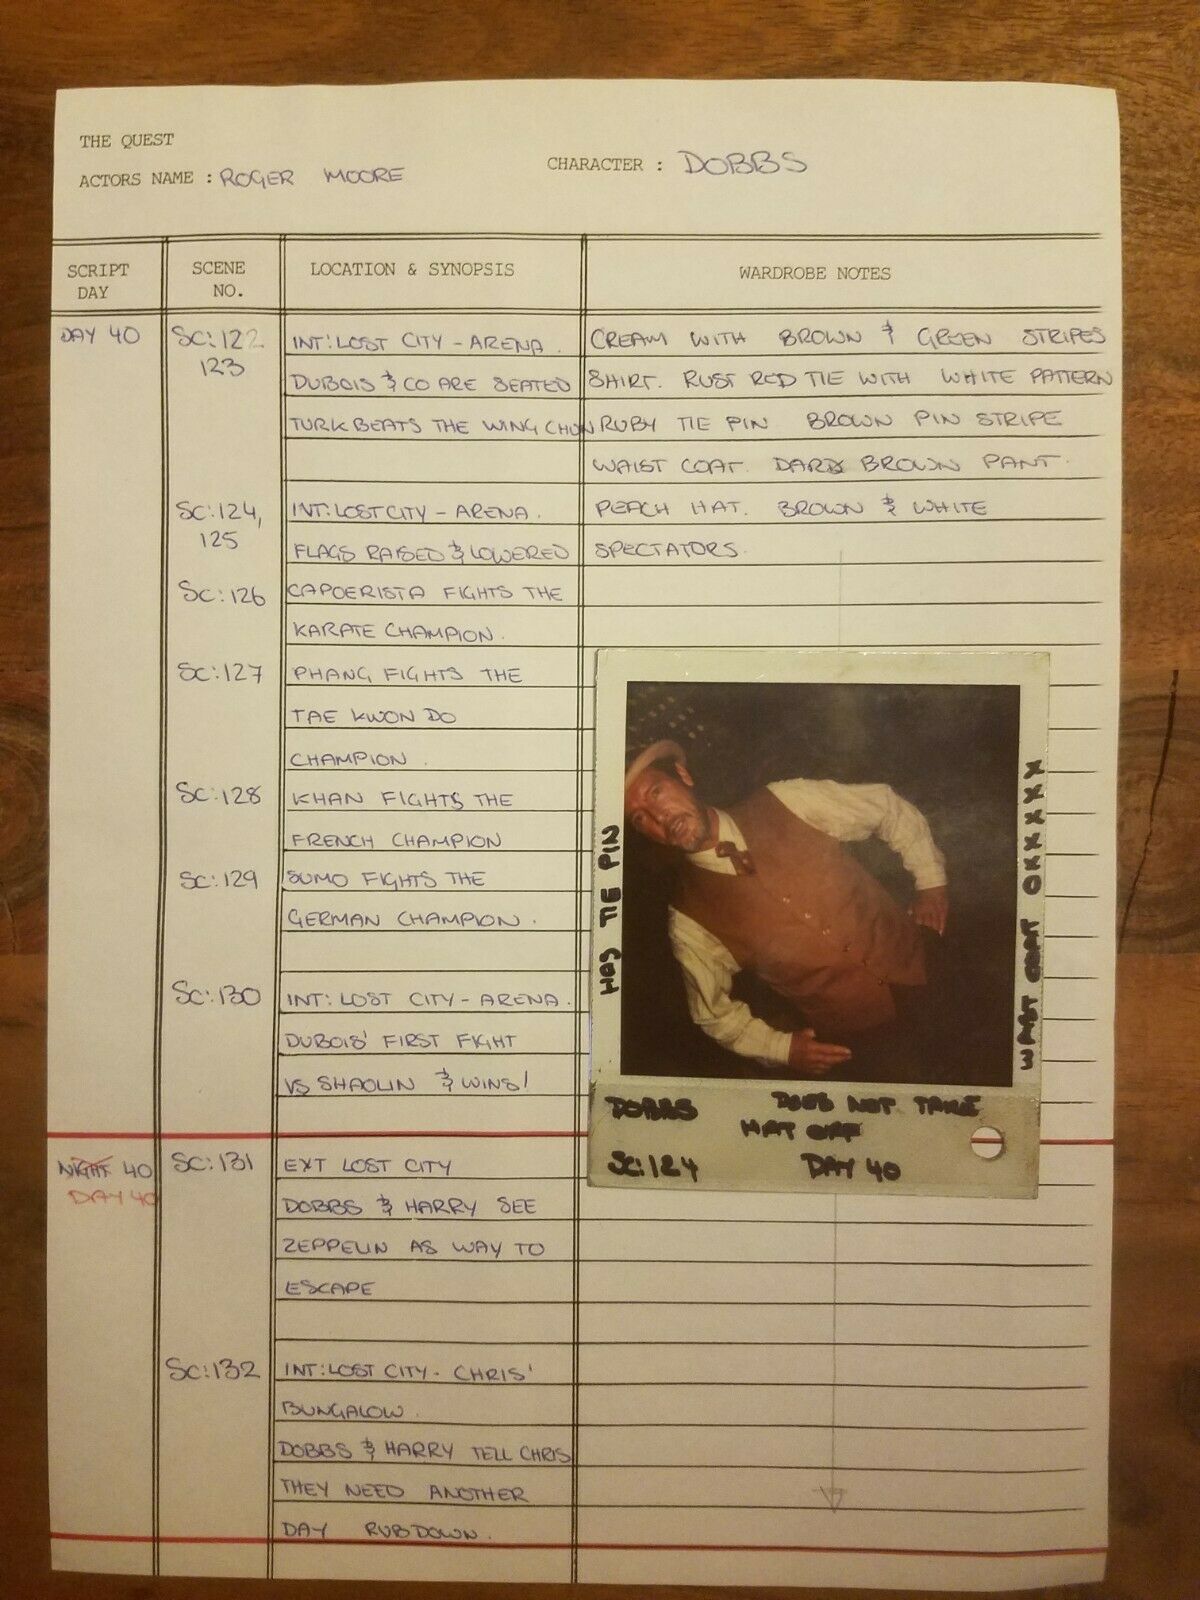 THE QUEST
ACTORS NAME : ROGER MOORE
CHARACTER : DOBBS
SCRIPT DAY
SCENE NO.
LOCATION & SYNOPSIS
WARDROBE NOTES
DAY 40
SC:122
123
INT:LOST CITY - ARENA.
DUBOIS & CO ARE SEATED
TURK BEATS THE WING CHUN
CREAM WITH BROWN & GREEN STRIPES
SHIRT. RUST RED TIE WITH WHITE PATTERN
RUBY TIE PIN BROWN PIN STRIPE
WAIST COAT. DARK BROWN PANT.
PEACH HAT. BROWN & WHITE
SPECTATORS.
SC:124,
125
INT:LOST CITY - ARENA.
FLAGS RAISED & LOWERED
SC:126
CAPOERISTA FIGHTS THE
KARATE CHAMPION.
SC:127
PHANG FIGHTS THE
TAE KWON DO
CHAMPION.
SC:128
KHAN FIGHTS THE
FRENCH CHAMPION
SC:129
SUMO FIGHTS THE
GERMAN CHAMPION.
SC:130
INT: LOST CITY - ARENA.
DUBOIS' FIRST FIGHT
VS SHAOLIN & WINS!
HAS TIE PIN
WAIST COAT OXXXXX
DOBBS DOES NOT TAKE
HAT OFF
SC:124 DAY 40
NIGHT 40
DAY 40
SC:131
EXT LOST CITY
DOBBS & HARRY SEE
ZEPPELIN AS WAY TO
ESCAPE
SC:132
INT:LOST CITY - CHRIS'
BUNGALOW.
DOBBS & HARRY TELL CHRIS
THEY NEED ANOTHER
DAY RUBDOWN.